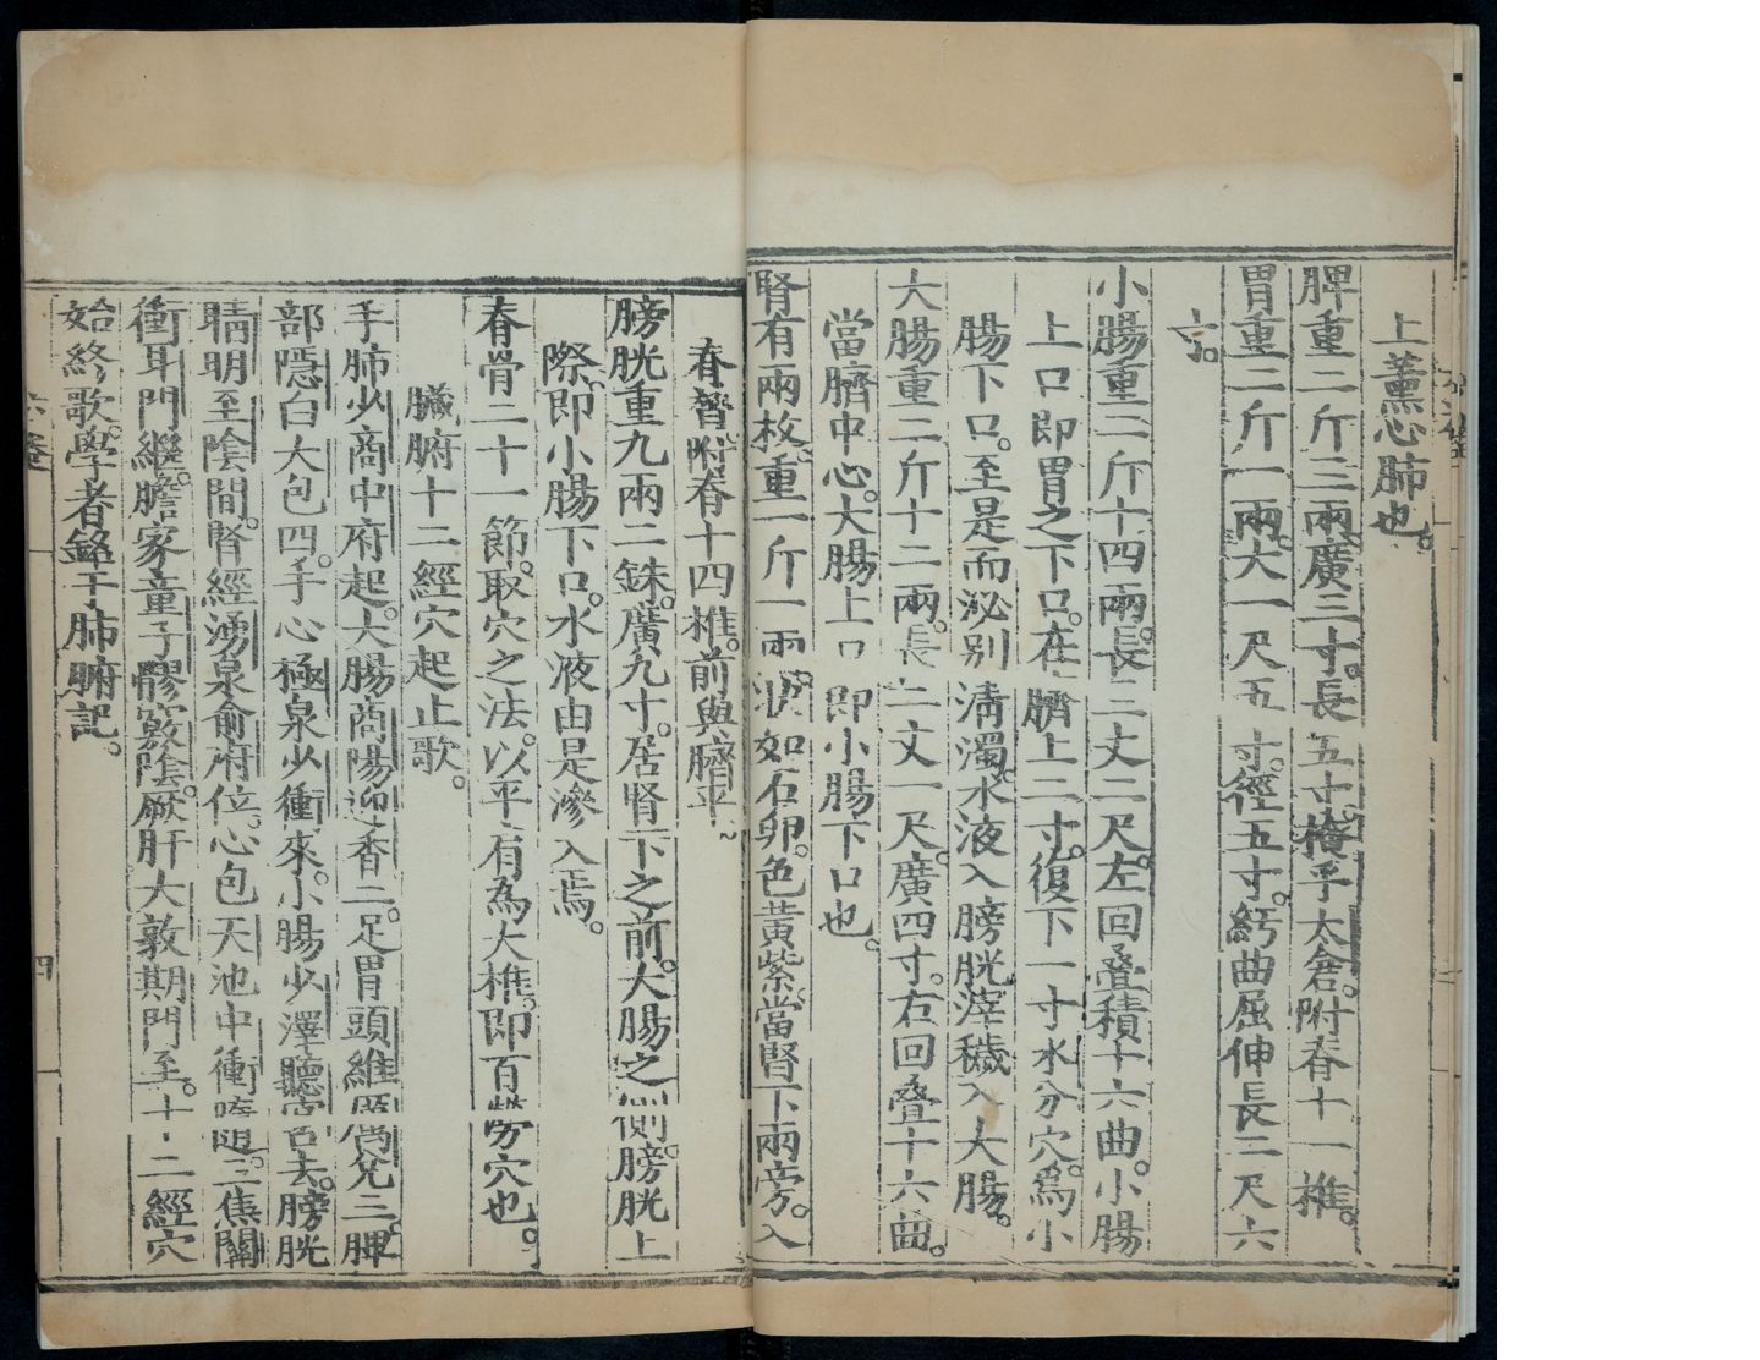 上薰心肺也。
脾重二斤三兩。廣三寸。長五寸。掩乎太倉。附脊十一椎。
胃重二斤一兩。大一尺五寸。徑五寸。紆曲屈伸長二尺六
寸。
小腸重二斤十四兩。長三丈二尺。左回疊積十六曲。小腸
上口即胃之下口。在臍上二寸。復下一寸水分穴。爲小
腸下口。至是而泌别清濁。水液入膀胱滓穢入大腸。
大腸重二斤十二兩。長二丈一尺。廣四寸。右回疊十六曲。
當臍中心。大腸上口即小腸下口也。
腎有兩枚。重一斤一兩。狀如石卵。色黃紫。當腎下兩旁。入
脊膂附脊十四椎。前與臍平
膀胱重九兩二銖。廣九寸。居腎下之前。大腸之側。膀胱上
際。即小腸下口。水液由是滲入焉。
脊骨二十一節。取穴之法。以平肩為大椎。即百勞穴也。
臟腑十二經穴起止歌。
手肺少商中府起。大腸商陽迎香二。足胃頭維厲兌三。脾
部隱白大包四。手心極泉少衝來。小腸少澤聽宮去。膀胱
睛明至陰間。腎經湧泉俞府位。心包天池中衝隨。三焦關
衝耳門繼。膽家童子髎竅陰。厥肝大敦期門至。十二經穴
始終歌。學者銘于肺腑記。
四